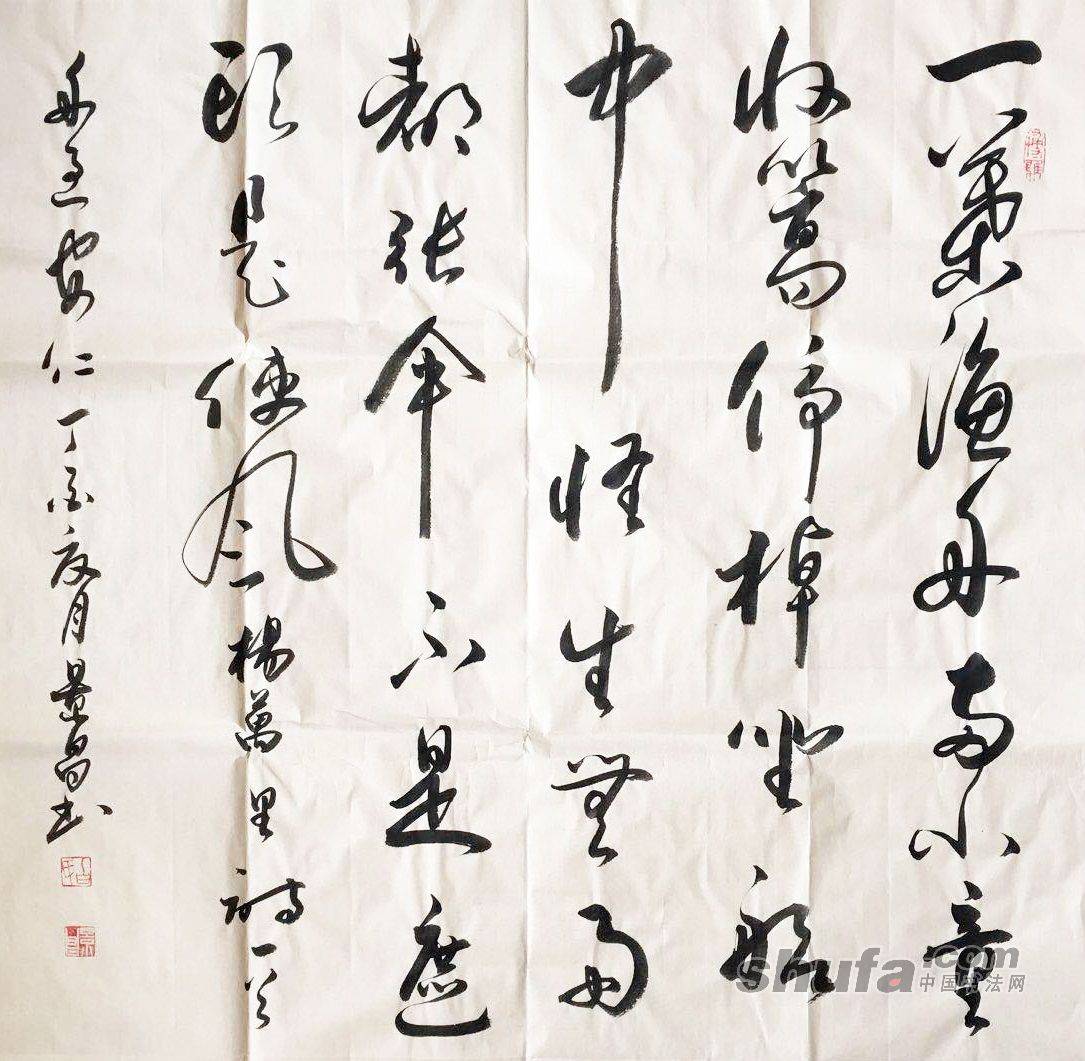 一葉漁舟兩小童
收篙停棹坐船
中怪生無雨
都张伞不是遮
头是使风楊萬里詩一首
舟過安仁丁酉夜月景昌书
shufa.com
中国书法网